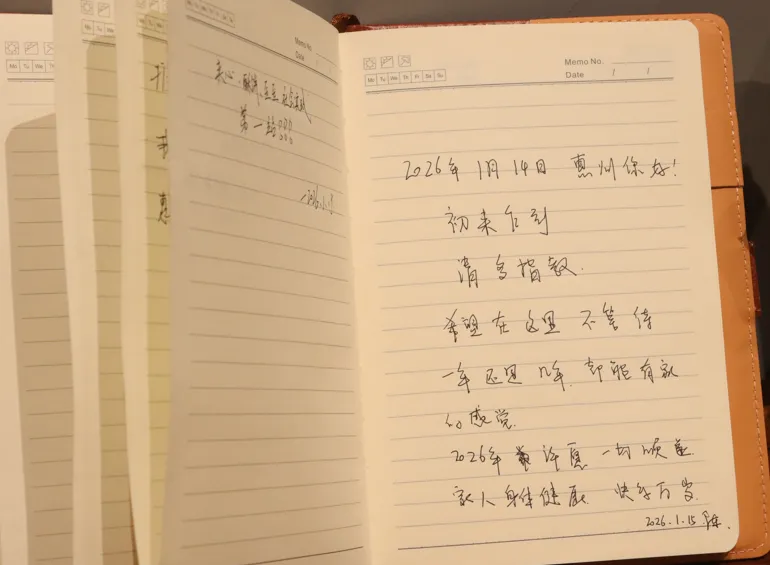 Memo No.
Date
第一站
Mo Tu We Th Fr Sa Su
Memo No.
Date / /
2026年 1月 14日 惠州你好!
初来乍到
请多指教.
希望在这里 不管待
一年还是几年.都能有家
的感觉.
2026年 许愿 一切顺遂
家人身体健康. 快乐万岁.
2026.1.15
Mo Tu We